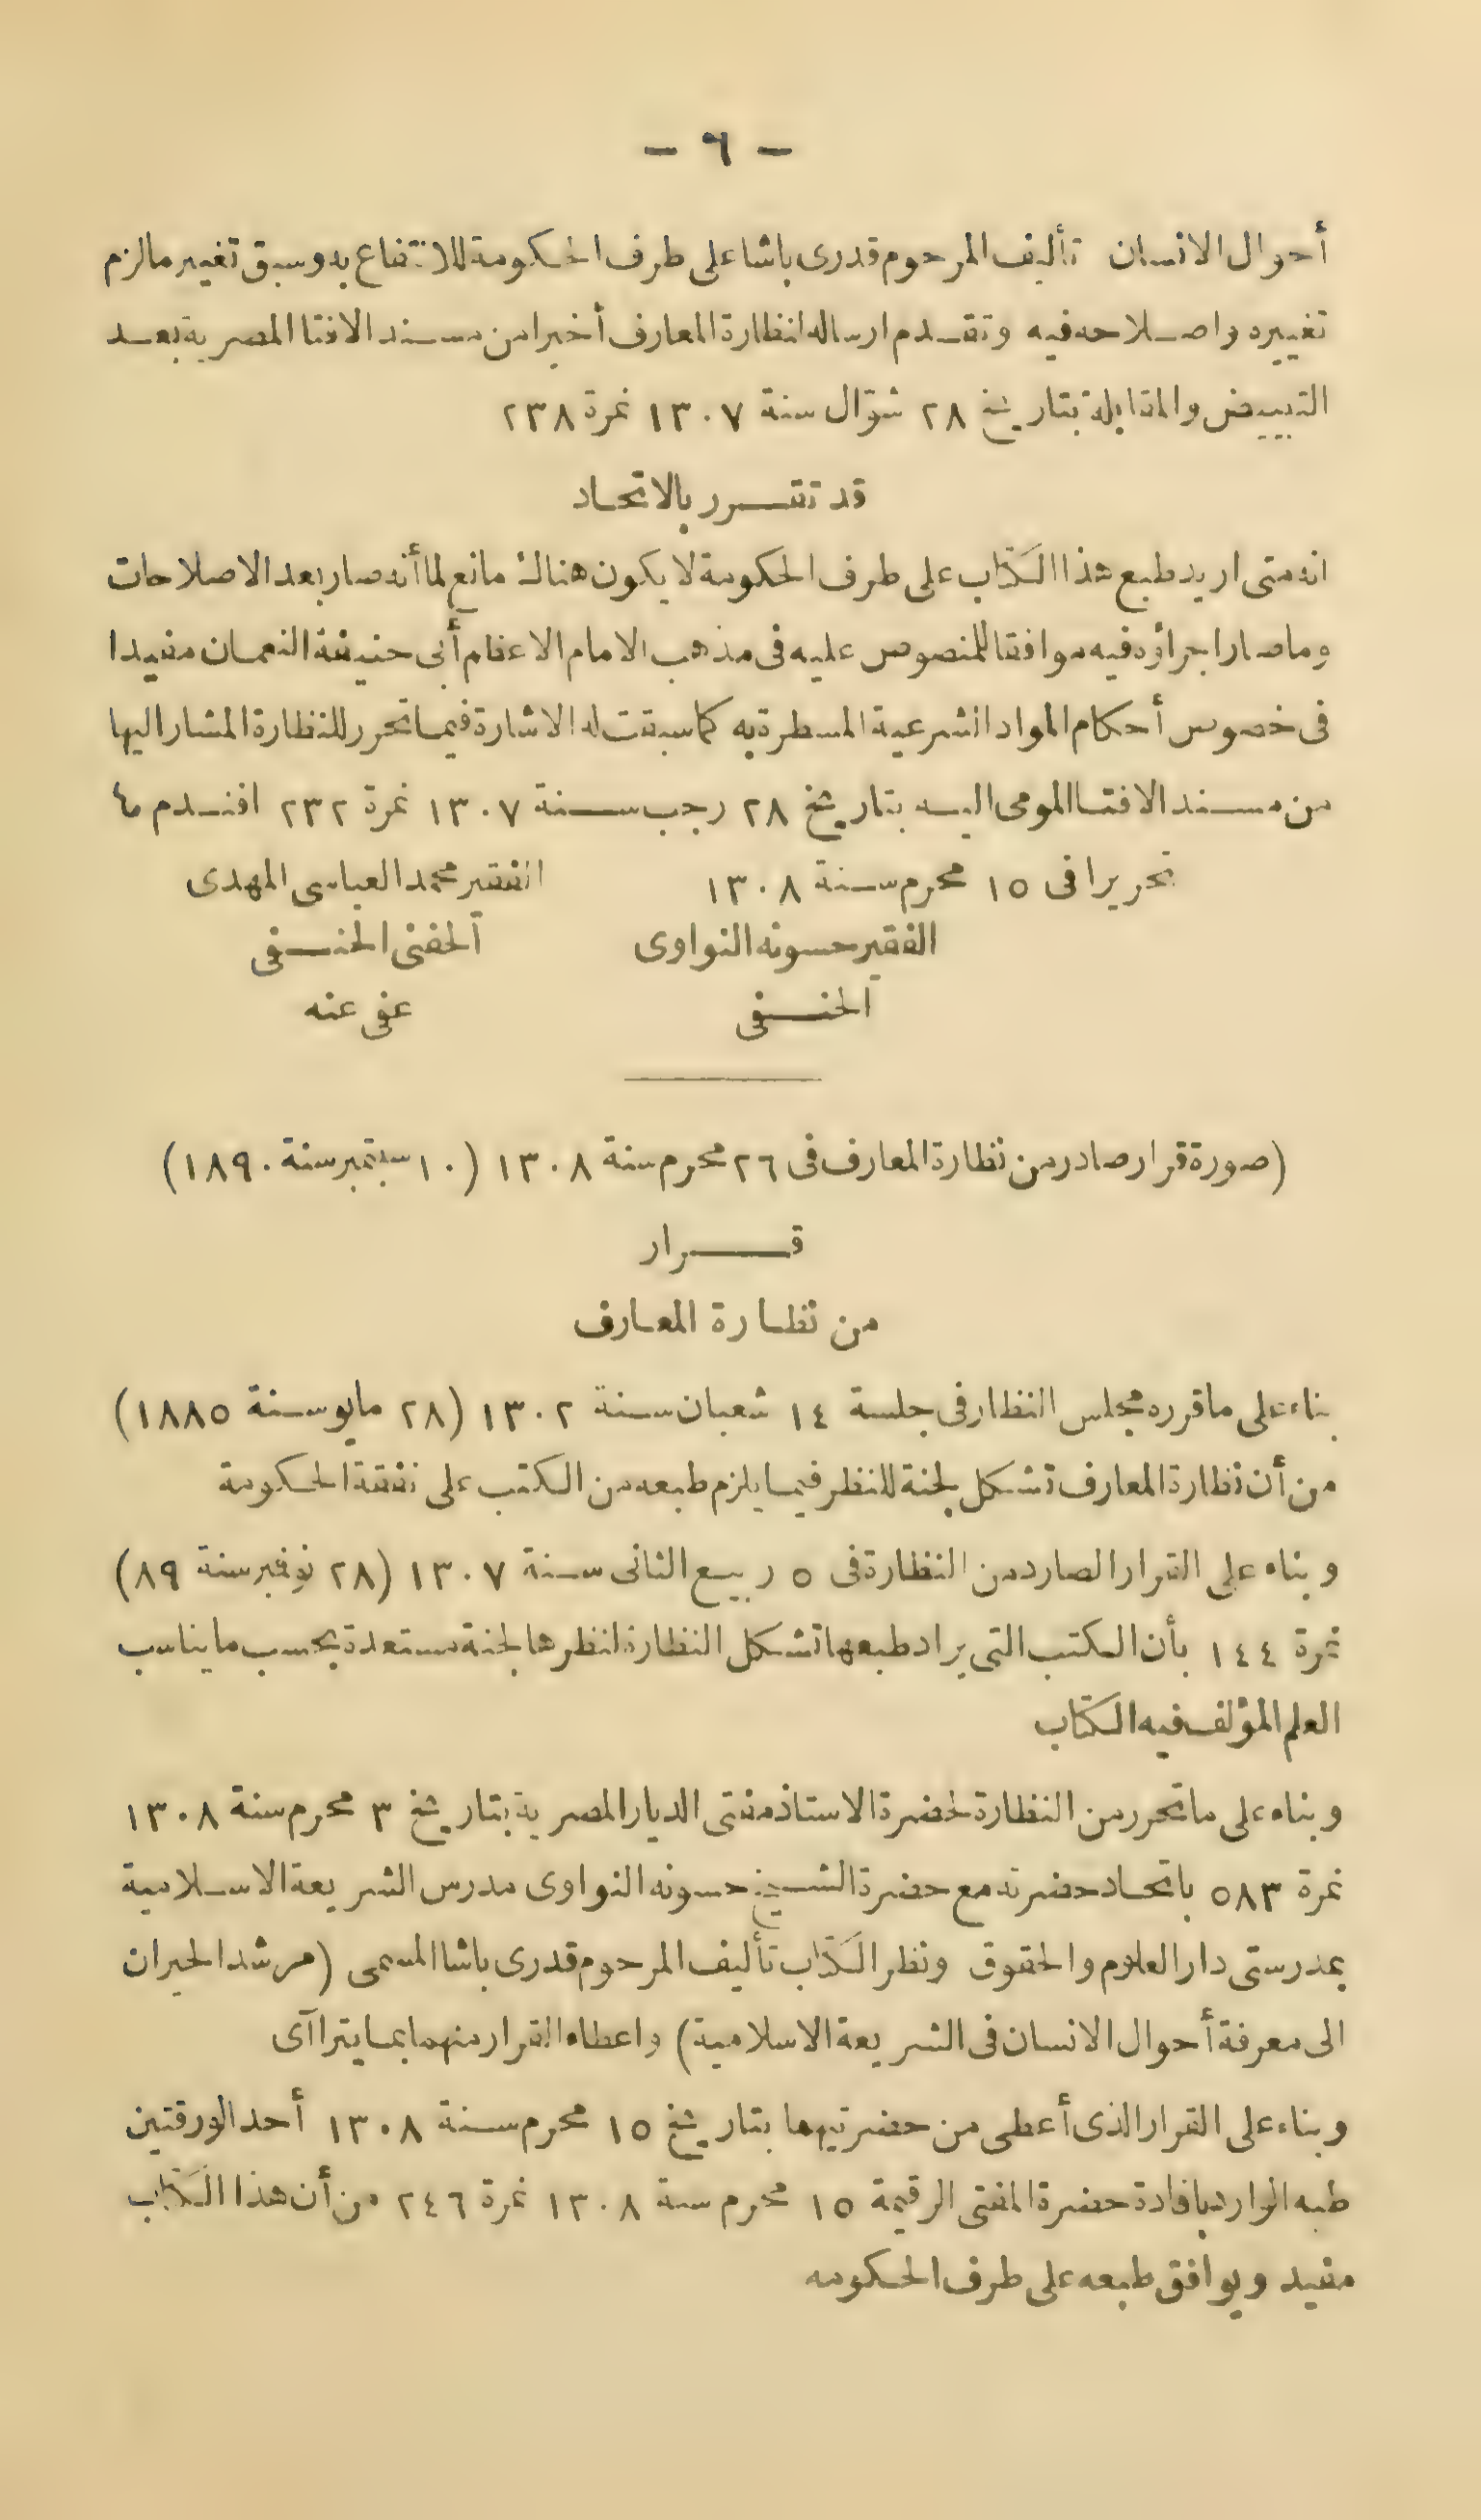 - ٦ -
أحوال الانسان تأليف المرحوم قدرى باشا على طرف الحكومة للانتفاع به وسبق تغيير ما لزم
تغييره واصلاحه فيه وتقدم ارساله لنظارة المعارف أخيرا من مسند الافتا المصرية بعد
التبييض والمقابلة بتاريخ ٢٨ شوّال سنة ١٣٠٧ نمرة ٢٣٨
قد تقرر بالاتحاد
انه متى اريد طبع هذا الكتاب على طرف الحكومة لا يكون هناك مانع لما أنه صار بعد الاصلاحات
وما صار اجراؤه فيه موافقا للمنصوص عليه فى مذهب الامام الاعظم أبى حنيفة النعمان مفيدا
فى خصوص أحكام المواد الشرعية المسطرة به كما سبقت له الاشارة فيما تحرر للنظارة المشار اليها
من مسند الافتا المومى اليه بتاريخ ٢٨ رجب سنة ١٣٠٧ نمرة ٢٣٢ افندم
تحريرا فى ١٥ محرم سنة ١٣٠٨ الفقير محمد العباسى المهدى
الفقير حسونه النواوى الحفنى الحنفى
الحنفى عفى عنه
(صورة قرار صادر من نظارة المعارف فى ٢٦ محرم سنة ١٣٠٨ (١٠ سبتمبر سنة ١٨٩٠)
قرار
من نظارة المعارف
بناء على ما قرره مجلس النظار فى جلسة ١٤ شعبان سنة ١٣٠٢ (٢٨ مايو سنة ١٨٨٥)
من أن نظارة المعارف تشكل لجنة للنظر فيما يلزم طبعه من الكتب على نفقة الحكومة
وبناء على القرار الصادر من النظارة فى ٥ ربيع الثانى سنة ١٣٠٧ (٢٨ نوفمبر سنة ٨٩)
نمرة ١٤٤ بأن الكتب التى يراد طبعها تشكل النظارة لنظرها لجنة مستعدة بحسب ما يناسب
العلم المؤلف فيه الكتاب
وبناء على ما تحرر من النظارة لحضرة الاستاذ مفتى الديار المصرية بتاريخ ٣ محرم سنة ١٣٠٨
نمرة ٥٨٣ باتحاد حضرته مع حضرة الشيخ حسونه النواوى مدرس الشريعة الاسلامية
بمدرستى دار العلوم والحقوق ونظر الكتاب تأليف المرحوم قدرى باشا المسمى (مرشد الحيران
الى معرفة أحوال الانسان فى الشريعة الاسلامية) واعطاء القرار منهما بما يترا آى
وبناء على القرار الذى أعطى من حضرتيهما بتاريخ ١٥ محرم سنة ١٣٠٨ أحد الورقتين
طيه الوارد بافادة حضرة المفتى الرقيمة ١٥ محرم سنة ١٣٠٨ نمرة ٢٤٦ من أن هذا الكتاب
مفيد ويوافق طبعه على طرف الحكومه